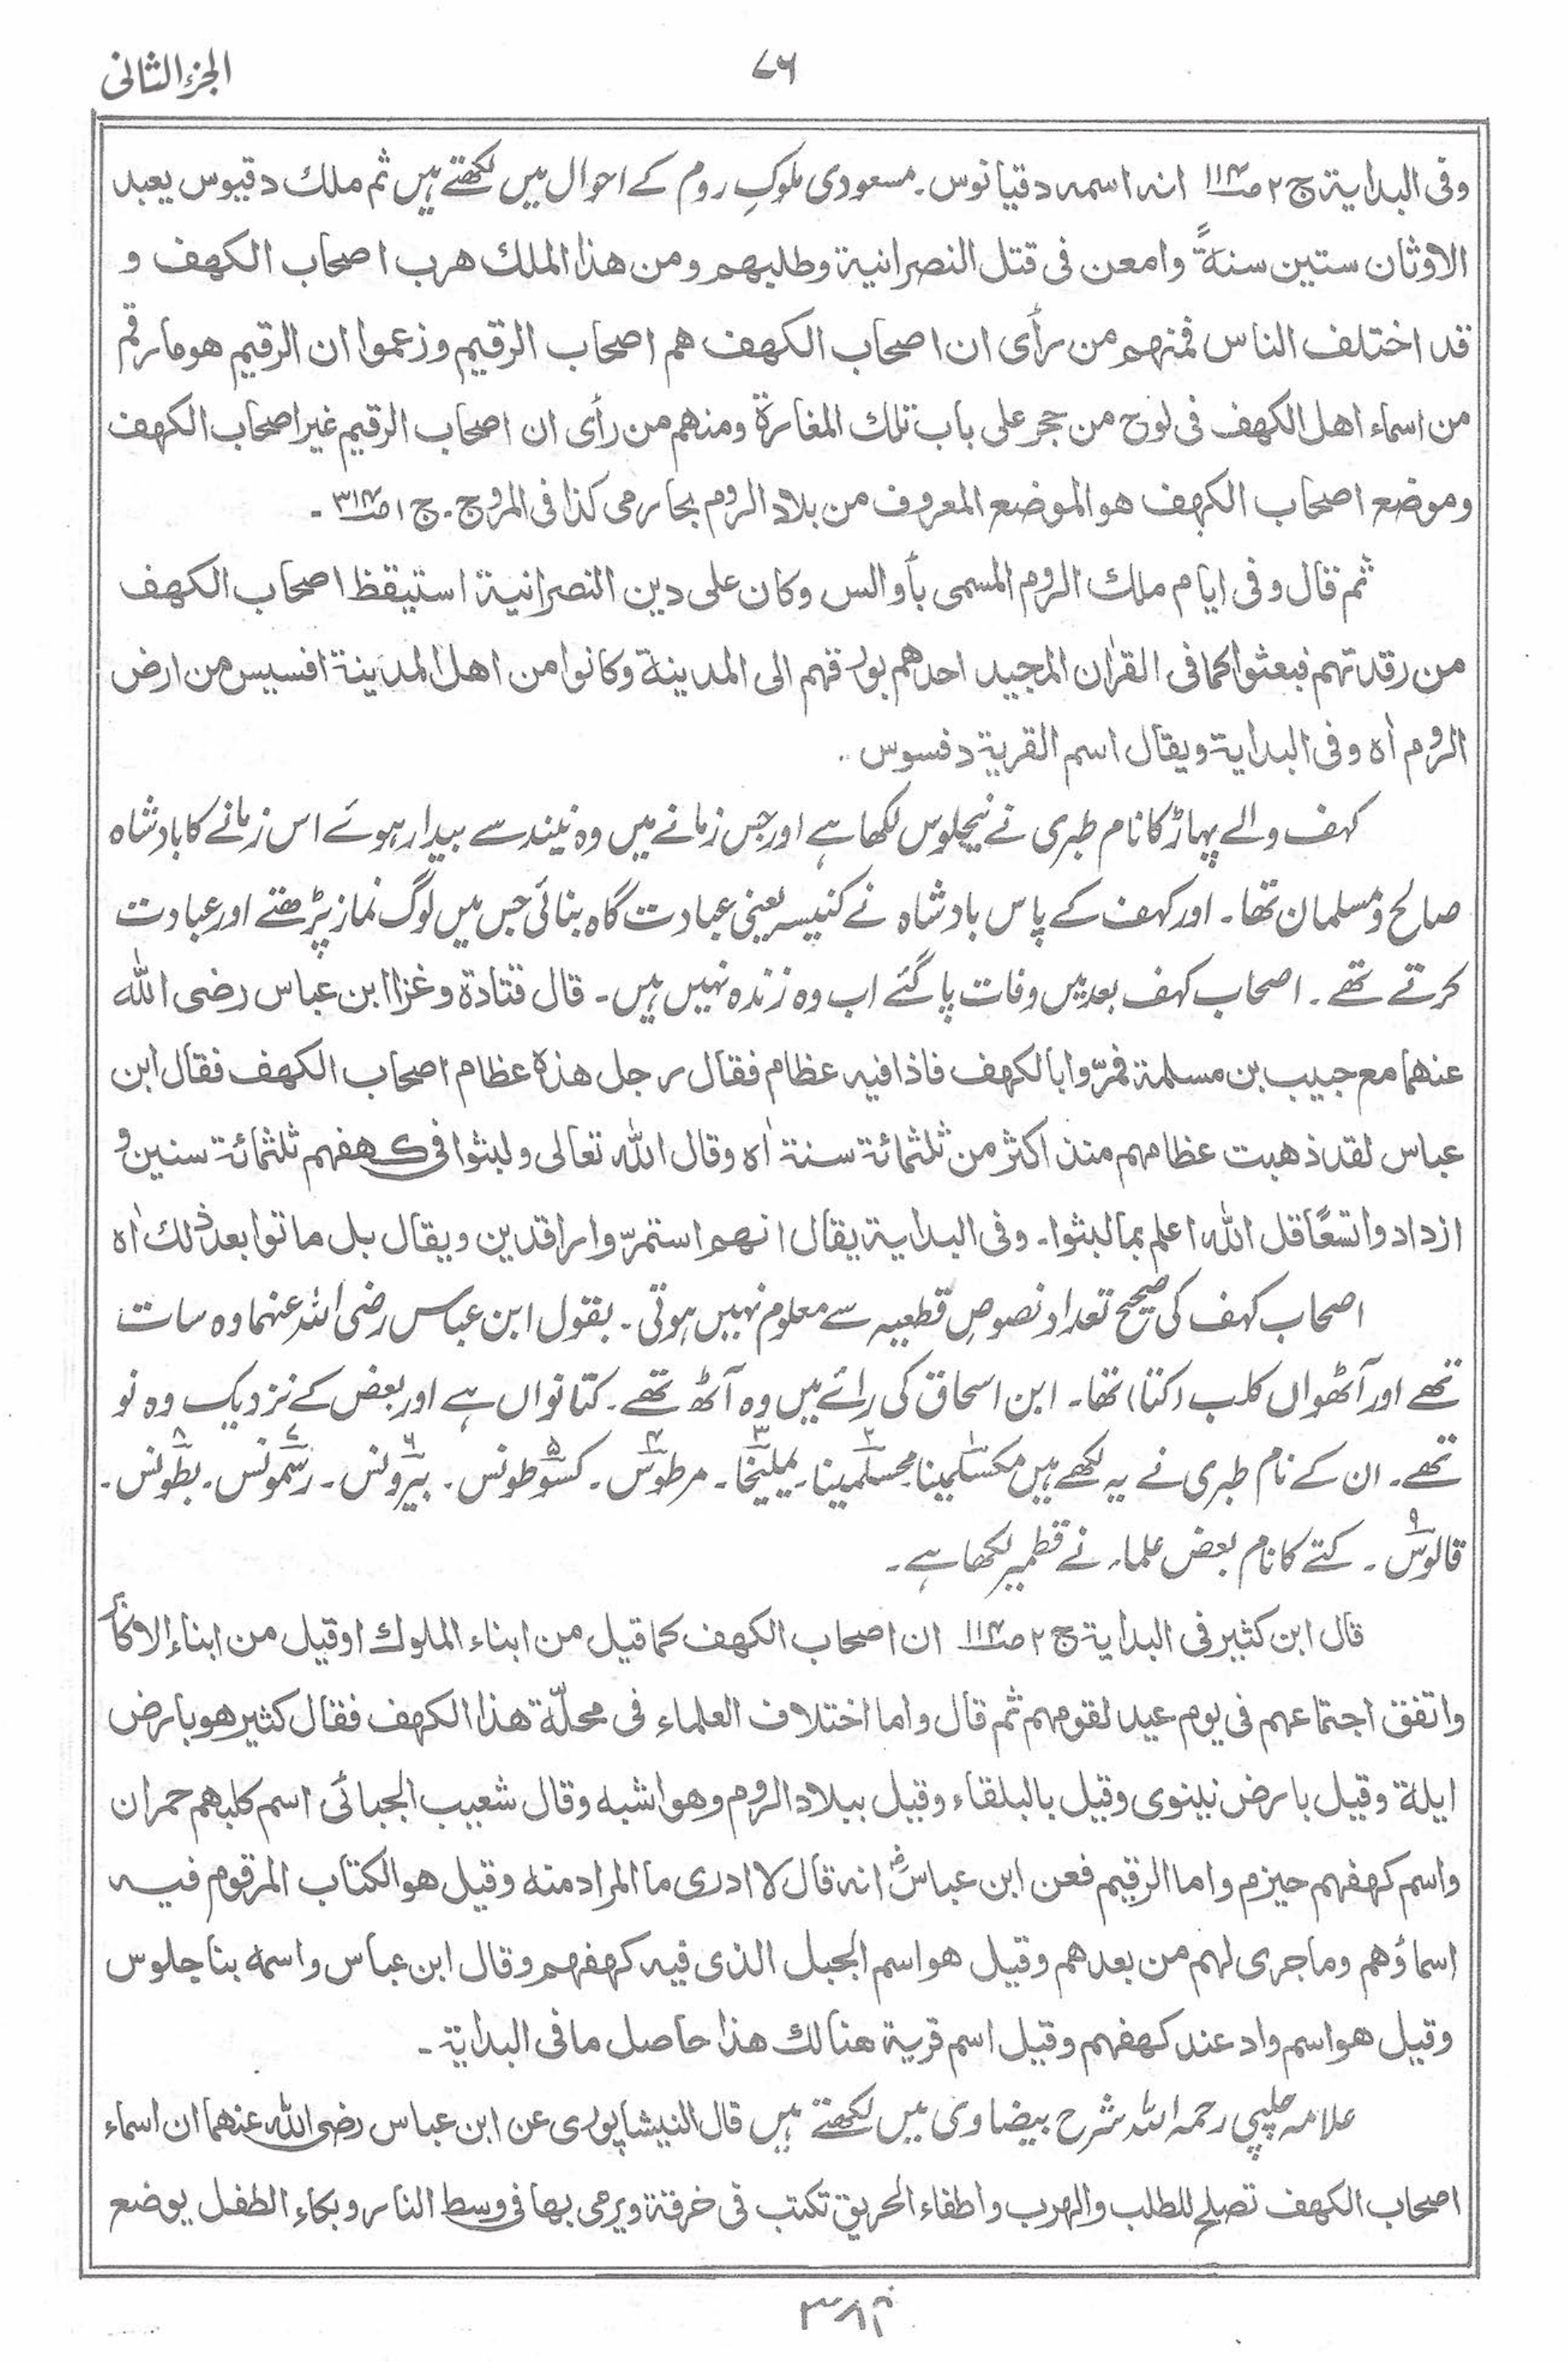 الجزء الثانی
۷۶
وفی البدایۃ ج ۲ ص۱۱۴ انہ اسمہ دقیانوس۔ مسعودی ملوکِ روم کے احوال میں لکھتے ہیں ثم ملک دقیوس یعبد
الاوثان ستین سنۃً وامعن فی قتل النصرانیۃ وطلبہم ومن ھذا الملک ھرب اصحاب الکھف و
قد اختلف الناس فمنہم من رأی ان اصحاب الکھف ھم اصحاب الرقیم وزعموا ان الرقیم ھو مارقم
من اسماء اھل الکھف فی لوح من حجر علی باب تلک المغارۃ ومنھم من رأی ان اصحاب الرقیم غیر اصحاب الکھف
وموضع اصحاب الکھف ھو الموضع المعروف من بلاد الروم بخارمی کذا فی المروج۔ ج ۱ ص۳۱۴ ۔
ثم قال وفی ایام ملک الروم المسمی بأوالس وکان علی دین النصرانیۃ استیقظ اصحاب الکھف
من رقدتہم فبعثوا کما فی القرٰان المجید احدھم بورقہم الی المدینۃ وکانوا من اھل المدینۃ افسیس من ارض
الروم اٰہ وفی البدایۃ ویقال اسم القریۃ دفسوس ۔
کہف والے پہاڑ کا نام طبری نے نیجلوس لکھا ہے اور جس زمانے میں وہ نیند سے بیدار ہوئے اس زمانے کا بادشاہ
صالح و مسلمان تھا۔ اور کہف کے پاس بادشاہ نے کنیسہ یعنی عبادت گاہ بنائی جس میں لوگ نماز پڑھتے اور عبادت
کرتے تھے۔ اصحاب کہف بعد میں وفات پا گئے اب وہ زندہ نہیں ہیں۔ قال قتادۃ وغزا ابن عباس رضی اللہ
عنھما مع حبیب بن مسلمۃ فمرّوا بالکھف فاذا فیہ عظام فقال رجل ھذہ عظام اصحاب الکھف فقال ابن
عباس لقد ذھبت عظامہم منذ اکثر من ثلثمائۃ سنۃ اٰہ وقال اللہ تعالی ولبثوا فی کھفہم ثلثمائۃ سنین و
ازدادوا تسعًا قل اللہ اعلم بما لبثوا۔ وفی البدایۃ یقال انھم استمرّوا راقدین ویقال بل ماتوا بعد ذٰلک اٰہ
اصحاب کہف کی صحیح تعداد نصوصِ قطعیہ سے معلوم نہیں ہوتی۔ بقول ابن عباس رضی اللہ عنہما وہ سات
تھے اور آٹھواں کلب (کتا) تھا۔ ابن اسحاق کی رائے میں وہ آٹھ تھے۔ کتا نواں ہے اور بعض کے نزدیک وہ نو
تھے۔ ان کے نام طبری نے یہ لکھے ہیں مکسلمینا۱۔ محسلمینا۲۔ یملیخا۳۔ مرطوس۴۔ کسوطونس۵۔ بیرونس۶۔ رسمونس۷۔ بطونس۸۔
قالوس۹۔ کتے کا نام بعض علماء نے قطمیر لکھا ہے۔
قال ابن کثیر فی البدایۃ ج ۲ ص۱۱۴ ان اصحاب الکھف کما قیل من ابناء الملوک او قیل من ابناء الاکابر
واتفق اجتماعہم فی یوم عید لقومہم ثم قال واما اختلاف العلماء فی محلّۃ ھذا الکھف فقال کثیر ھو بارض
ایلۃ وقیل بارض نینوی وقیل بالبلقاء وقیل ببلاد الروم وھو اشبہ وقال شعیب الجبائی اسم کلبھم حمران
واسم کھفہم حیزم واما الرقیم فعن ابن عباسؓ انہ قال لا ادری ما المراد منہ وقیل ھو الکتاب المرقوم فیہ
اسماؤھم وما جری لہم من بعدھم وقیل ھو اسم الجبل الذی فیہ کھفھم وقال ابن عباس واسمہ بناجلوس
وقیل ھو اسم واد عند کھفہم وقیل اسم قریۃ ھنالک ھذا حاصل ما فی البدایۃ۔
علامہ چلپی رحمہ اللہ شرح بیضاوی میں لکھتے ہیں قال النیشاپوری عن ابن عباس رضی اللہ عنھما ان اسماء
اصحاب الکھف تصلح للطلب والہرب واطفاء الحریق تکتب فی خرقۃ ویرمی بھا فی وسط النار وبکاءِ الطفل یوضع
۳۸۴